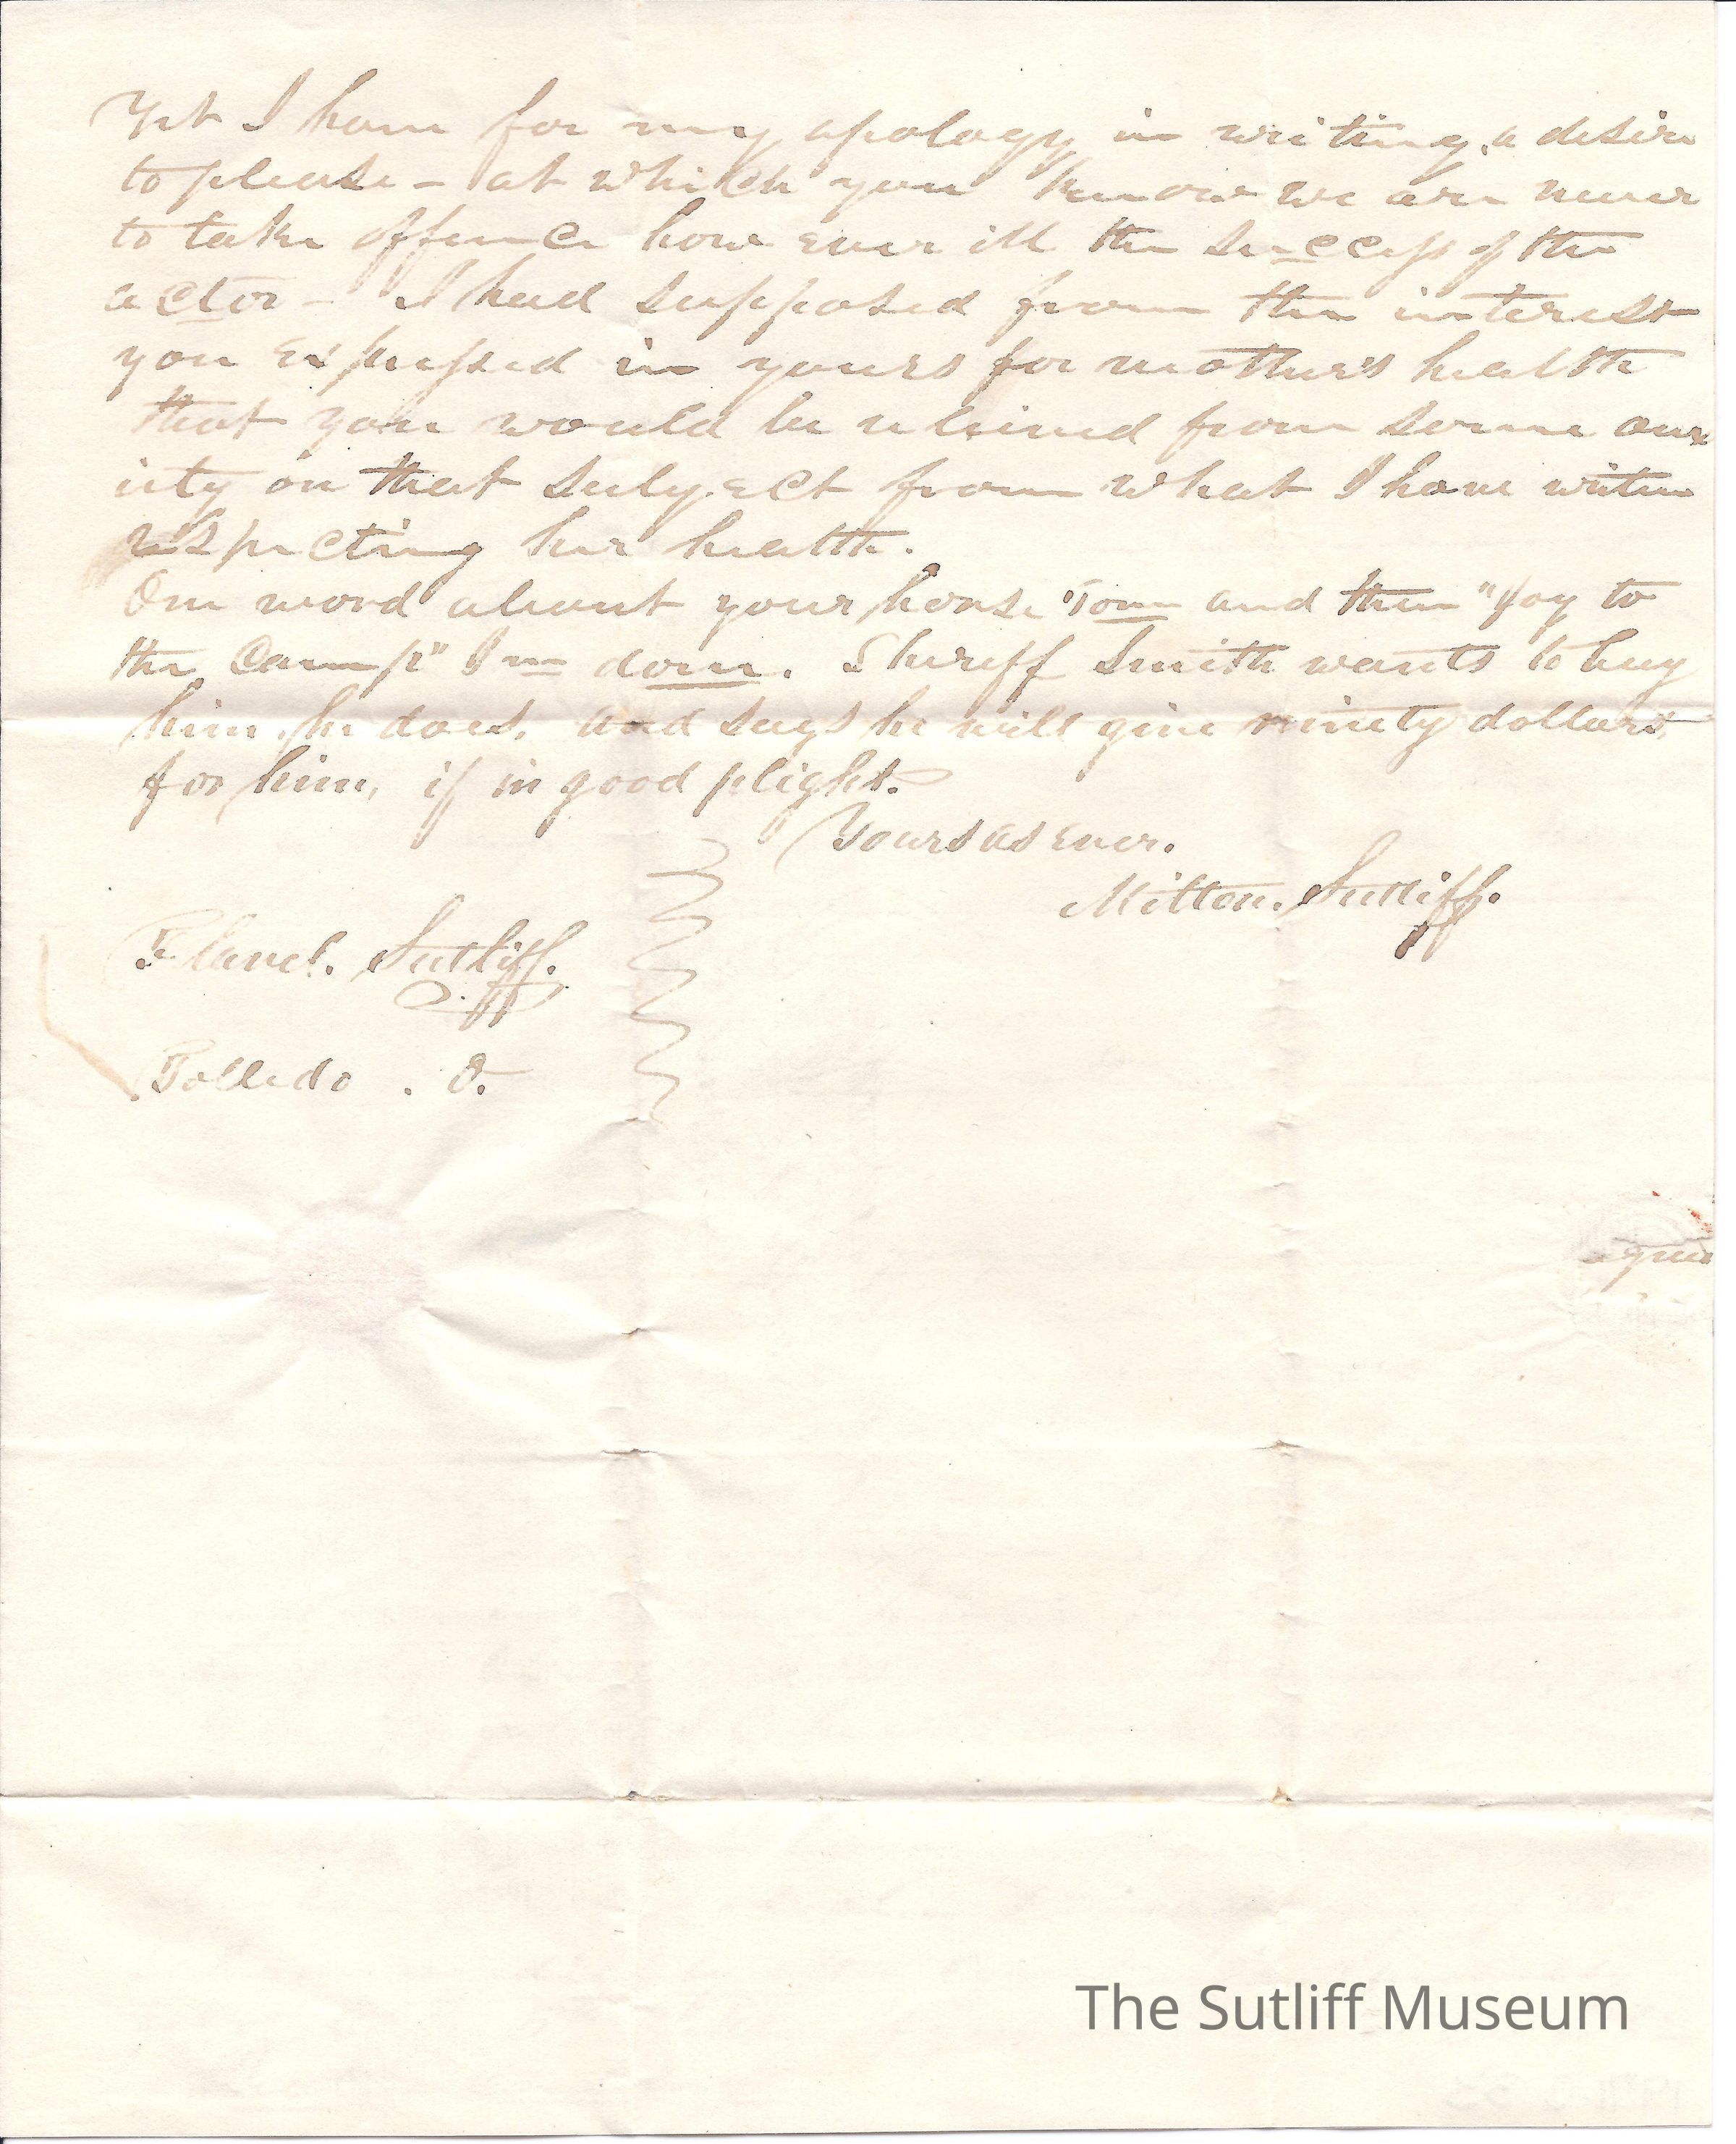 Yet I have for my apology in writing, a desire
to please - at which you know we are never
to take offence how ever ill the success of the
actor - I had supposed from the interest
you expressed in yours for mother's health
that you would be relieved from some anx
iety on that subject from what I have writen
respecting her health.
One word about your horse "Tom and then "Joy to
the Camp" I'm done. Sheriff Smith wants to buy
him, he does, and says he will give ninety dollars,
for him, if in good plight.
Yours as ever.
Milton. Sutliff.
Flavel. Sutliff.
Tolledo . O.
The Sutliff Museum